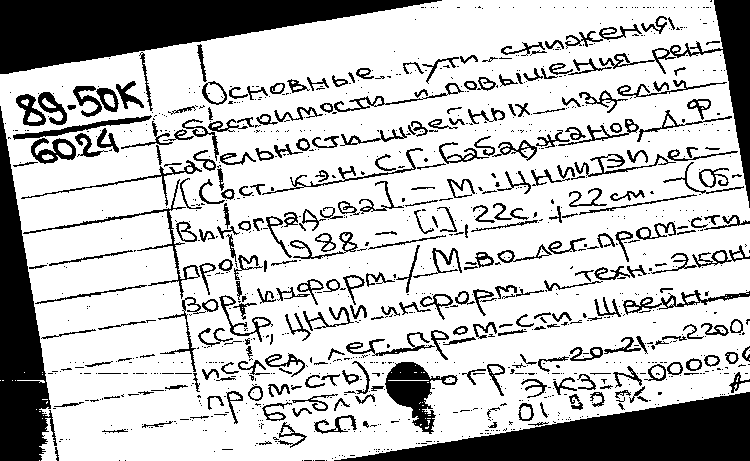 89-50К
6024
Основные пути снижения
себестоимости и повышения рен-
табельности швейных изделий
/[Сост. к.э.н. С.Г. Бабаджанов, Л.Ф.
Виноградова]. - М.: ЦНИИТЭИлег-
пром, 1988. - [1], 22с.; 22см. - (Об-
зор. информ. / М-во лег. пром-сти
СССР, ЦНИИ информ. и техн.-экон.
исслед. лег. пром-сти. Швейн.
пром-сть). - огр.: с. 20-21. - 2200
Библи ЭКЗ. N 000006
ДСП.